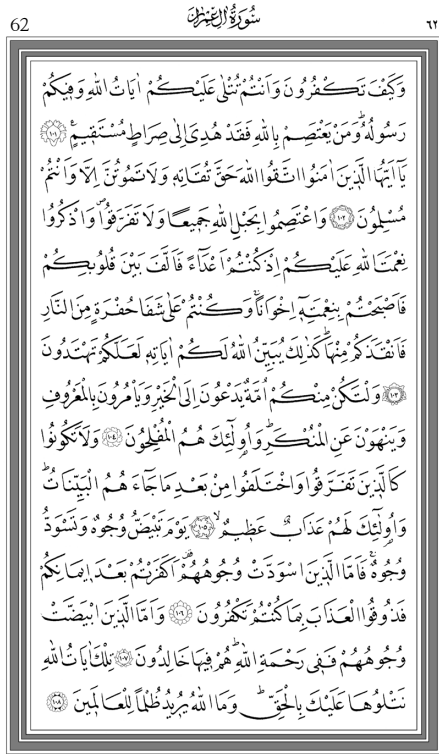 62 سُورَةُ اٰلِ عِمْرٰنَ ٦٢
وَكَيْفَ تَكْفُرُونَ وَاَنْتُمْ تُتْلٰى عَلَيْكُمْ اٰيَاتُ اللّٰهِ وَفِيكُمْ
رَسُولُهُۜ وَمَنْ يَعْتَصِمْ بِاللّٰهِ فَقَدْ هُدِيَ اِلٰى صِرَاطٍ مُسْتَقِيمٍ۟ ﴿١٠١﴾
يَٓا اَيُّهَا الَّذِينَ اٰمَنُوا اتَّقُوا اللّٰهَ حَقَّ تُقَاتِه۪ وَلَا تَمُوتُنَّ اِلَّا وَاَنْتُمْ
مُسْلِمُونَ ﴿١٠٢﴾ وَاعْتَصِمُوا بِحَبْلِ اللّٰهِ جَمِيعًا وَلَا تَفَرَّقُواۖ وَاذْكُرُوا
نِعْمَتَ اللّٰهِ عَلَيْكُمْ اِذْ كُنْتُمْ اَعْدَٓاءً فَاَلَّفَ بَيْنَ قُلُوبِكُمْ
فَاَصْبَحْتُمْ بِنِعْمَتِه۪ٓ اِخْوَانًاۚ وَكُنْتُمْ عَلٰى شَفَا حُفْرَةٍ مِنَ النَّارِ
فَاَنْقَذَكُمْ مِنْهَاۜ كَذٰلِكَ يُبَيِّنُ اللّٰهُ لَكُمْ اٰيَاتِه۪ لَعَلَّكُمْ تَهْتَدُونَ
﴿١٠٣﴾ وَلْتَكُنْ مِنْكُمْ اُمَّةٌ يَدْعُونَ اِلَى الْخَيْرِ وَيَأْمُرُونَ بِالْمَعْرُوفِ
وَيَنْهَوْنَ عَنِ الْمُنْكَرِۜ وَاُو۬لٰٓئِكَ هُمُ الْمُفْلِحُونَ ﴿١٠٤﴾ وَلَا تَكُونُوا
كَالَّذِينَ تَفَرَّقُوا وَاخْتَلَفُوا مِنْ بَعْدِ مَا جَٓاءَهُمُ الْبَيِّنَاتُۜ
وَاُو۬لٰٓئِكَ لَهُمْ عَذَابٌ عَظِيمٌۙ ﴿١٠٥﴾ يَوْمَ تَبْيَضُّ وُجُوهٌ وَتَسْوَدُّ
وُجُوهٌۚ فَاَمَّا الَّذِينَ اسْوَدَّتْ وُجُوهُهُمْ۠ اَكَفَرْتُمْ بَعْدَ اِيمَانِكُمْ
فَذُوقُوا الْعَذَابَ بِمَا كُنْتُمْ تَكْفُرُونَ ﴿١٠٦﴾ وَاَمَّا الَّذِينَ ابْيَضَّتْ
وُجُوهُهُمْ فَفِي رَحْمَةِ اللّٰهِۜ هُمْ فِيهَا خَالِدُونَ ﴿١٠٧﴾ تِلْكَ اٰيَاتُ اللّٰهِ
نَتْلُوهَا عَلَيْكَ بِالْحَقِّۜ وَمَا اللّٰهُ يُرِيدُ ظُلْمًا لِلْعَالَمِينَ ﴿١٠٨﴾